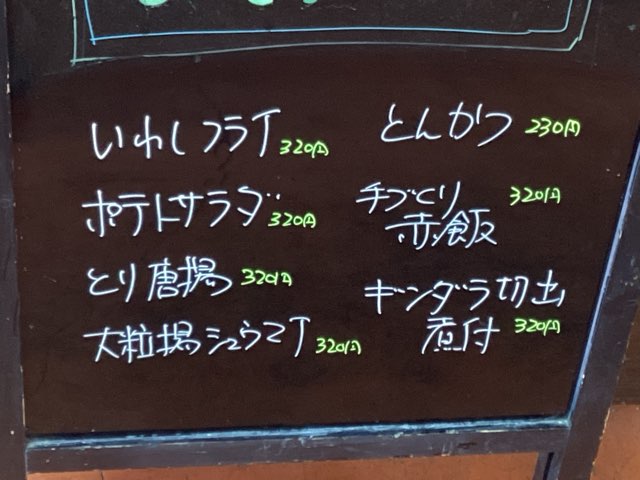 いわしフライ 320円
ポテトサラダ 320円
とり唐揚 320円
大粒揚シュウマイ 320円
とんかつ 230円
手づくり 320円
赤飯
ギンダラ切出
煮付 320円